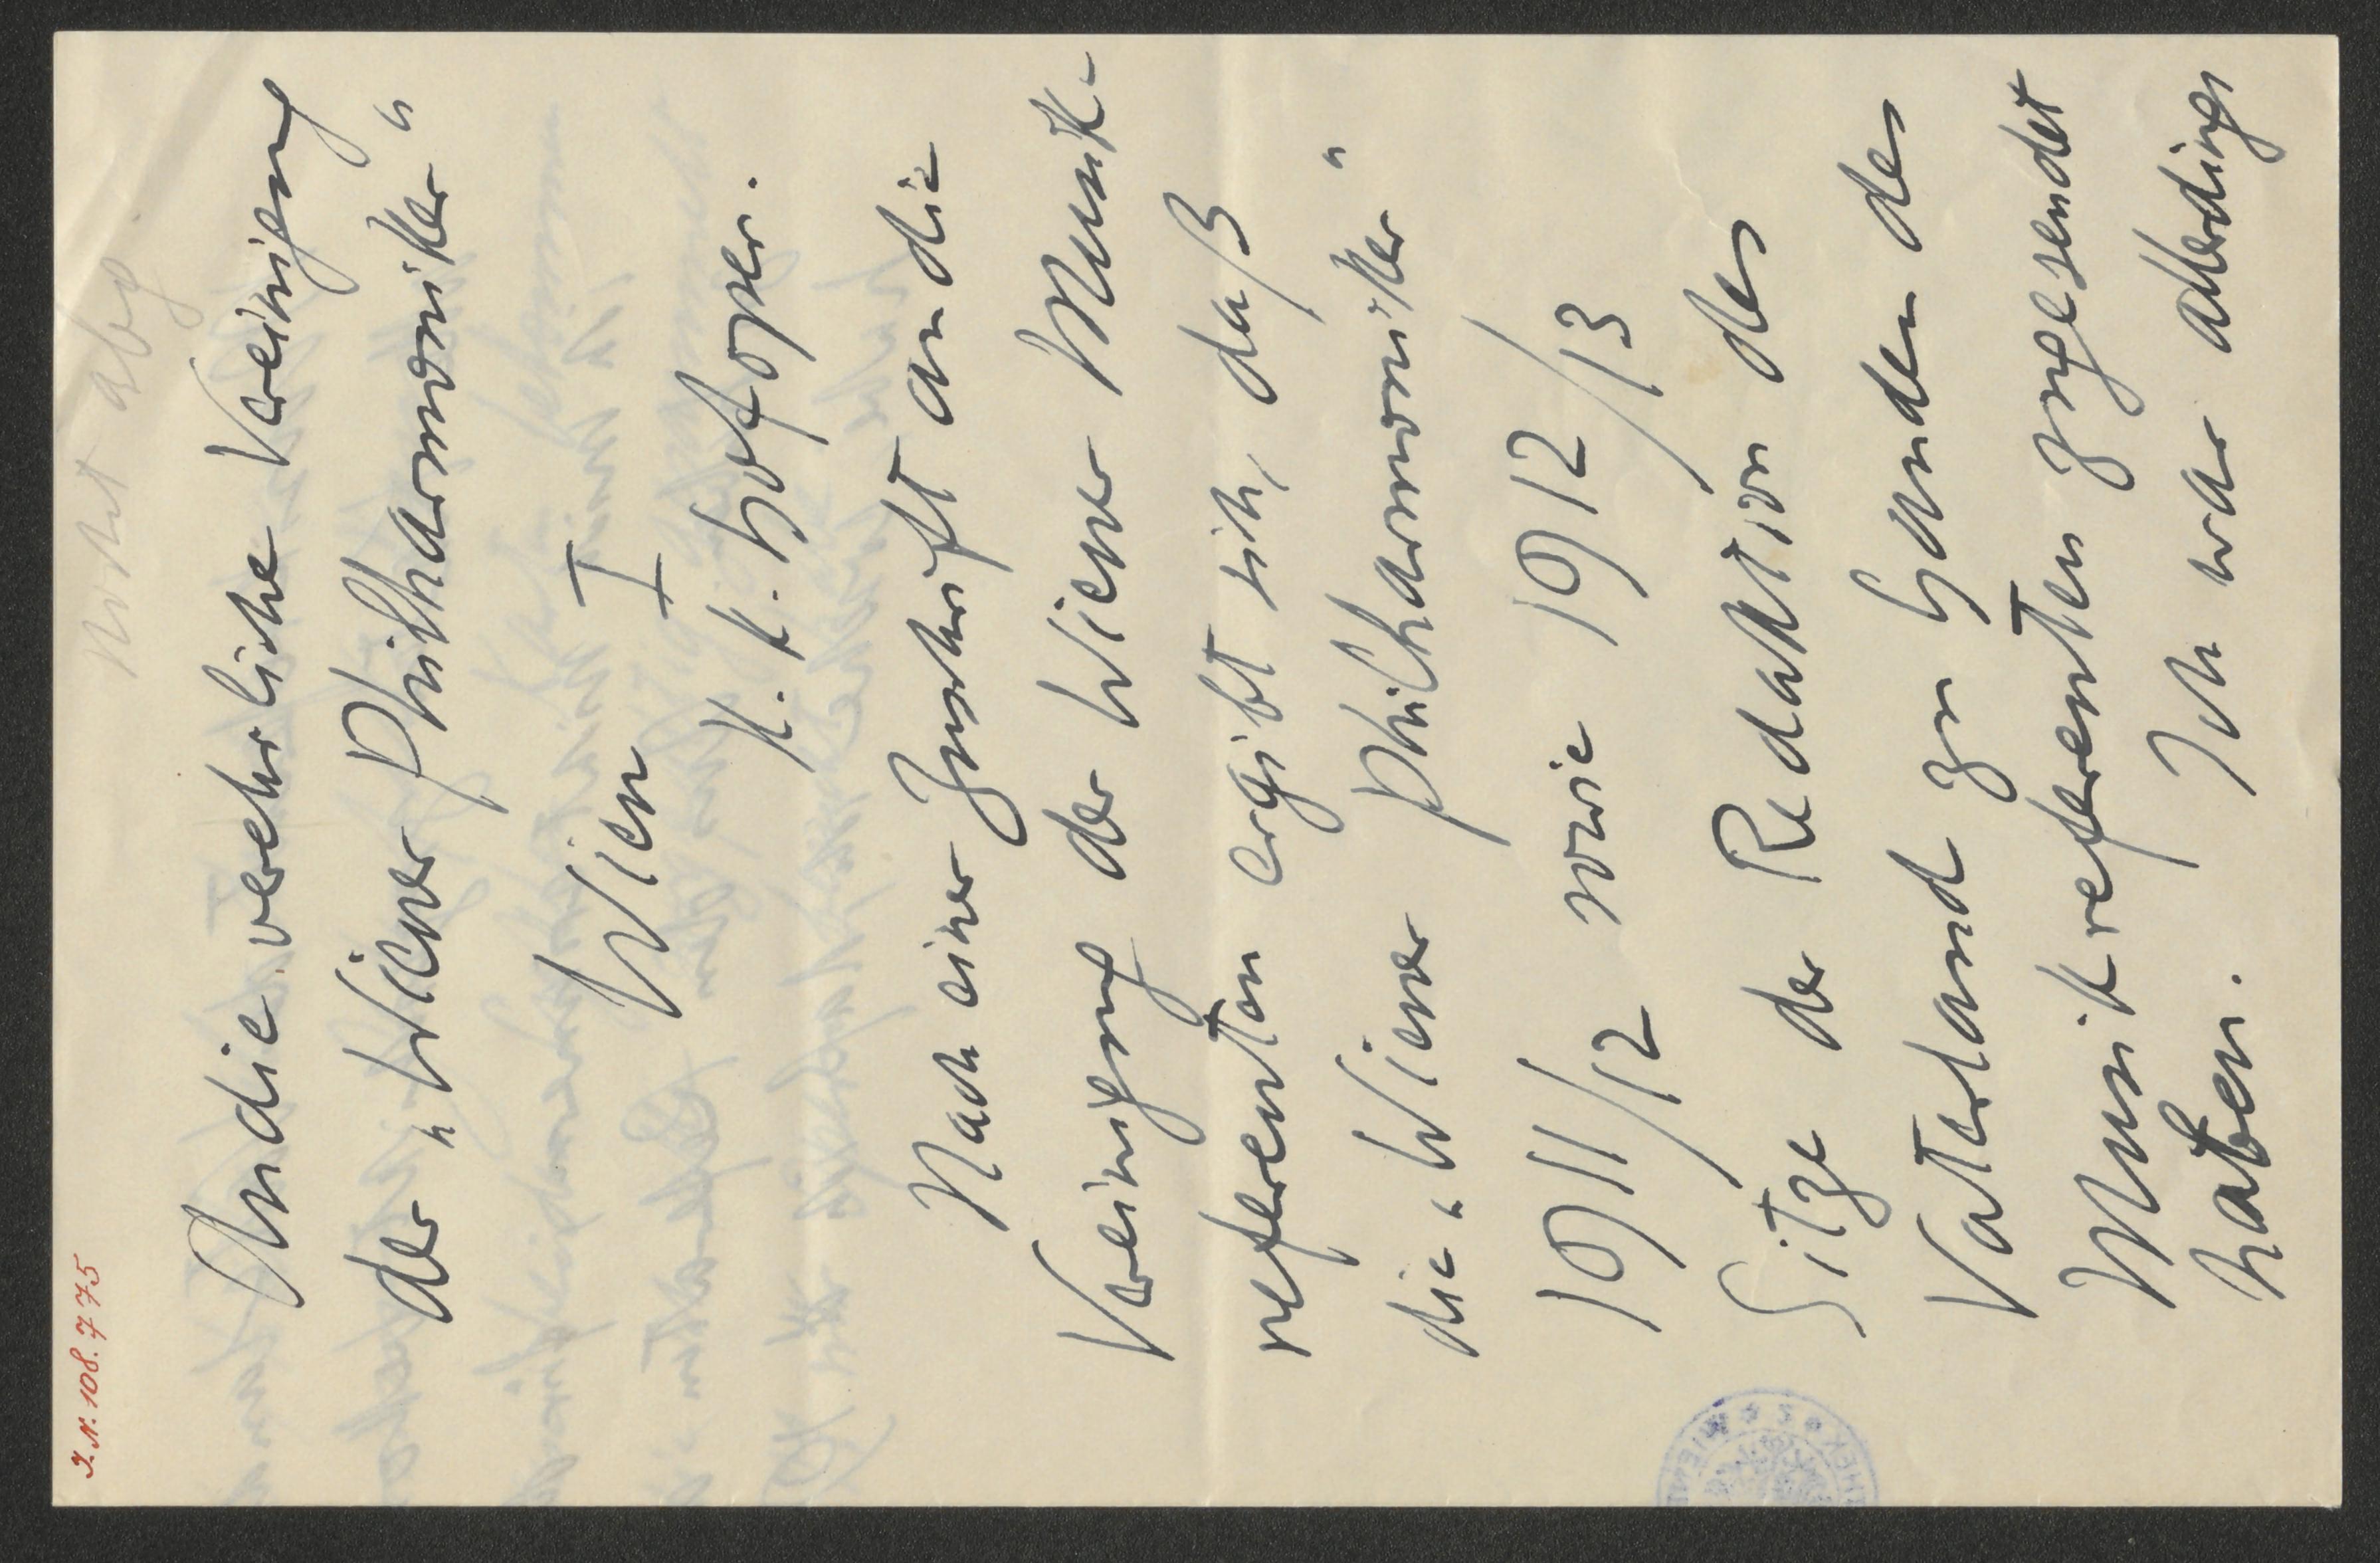 J. N. 108.775
Nicht abg
An die verehrliche Vereinigung
der „Wiener Philharmoniker“
Wien I
K. K. Hofoper.
Nach einer Zuschrift an die
Vereinigung der Wiener Musik-
referenten ergibt sich, daß
die „Wiener Philharmoniker“
1911/12 sowie 1912/13
Sitze der Redaktion des
Vaterland zu Handen des
Musikreferenten zugesendet
haben. Ich war allerdings